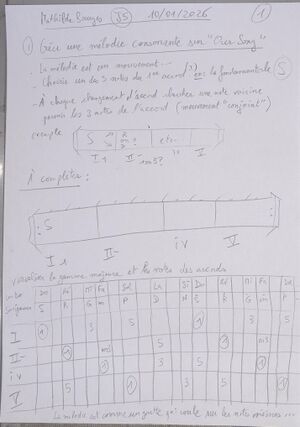 Mathilde 35 10/01/2026 1
① Crée une mélodie consonante sur "Pier Song"
- La mélodie est en mouvement...
- Choisir un des 3 notes du 1er accord (I) ex: la fondamentale (S)
- À chaque changement d'accord chercher une note voisine
parmi les 3 notes de l'accord (mouvement "conjoint")
exemple
S etc..
I 1 II- IV V
À compléter :
S
I 1 II- IV V
visualiser la gamme majeure et les notes des accords
Do Ré Mi Fa Sol La Si Do Ré Mi Fa Sol
S R G m P D N S R G m P
I 1 3 5 1 3 5
II- 1 m3 5 1 m3
IV 1 3 5 1
V 5 1 3 5 1
La mélodie est comme une goutte qui coule sur les notes voisines ...